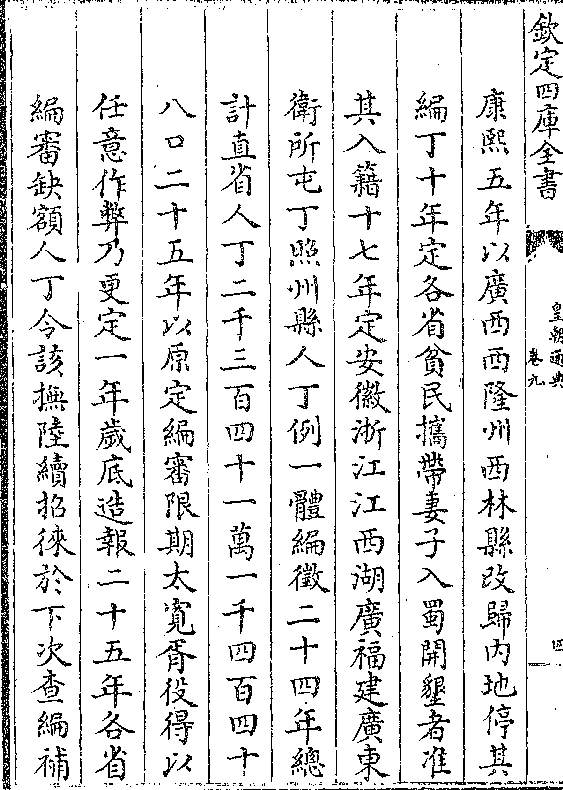 欽定四庫全書
皇朝通典
卷九
四
康熙五年以廣西西隆州西林縣改歸內地停其
編丁十年定各省貧民攜帶妻子入蜀開墾者准
其入籍十七年定安徽浙江江西湖廣福建廣東
衛所屯丁照州縣人丁例一體編徵二十四年總
計直省人丁二千三百四十一萬一千四百四十
八口二十五年以原定編審限期太寬胥役得以
任意作弊乃更定一年歲底造報二十五年各省
編審缺額人丁令該撫陸續招徠於下次查編補